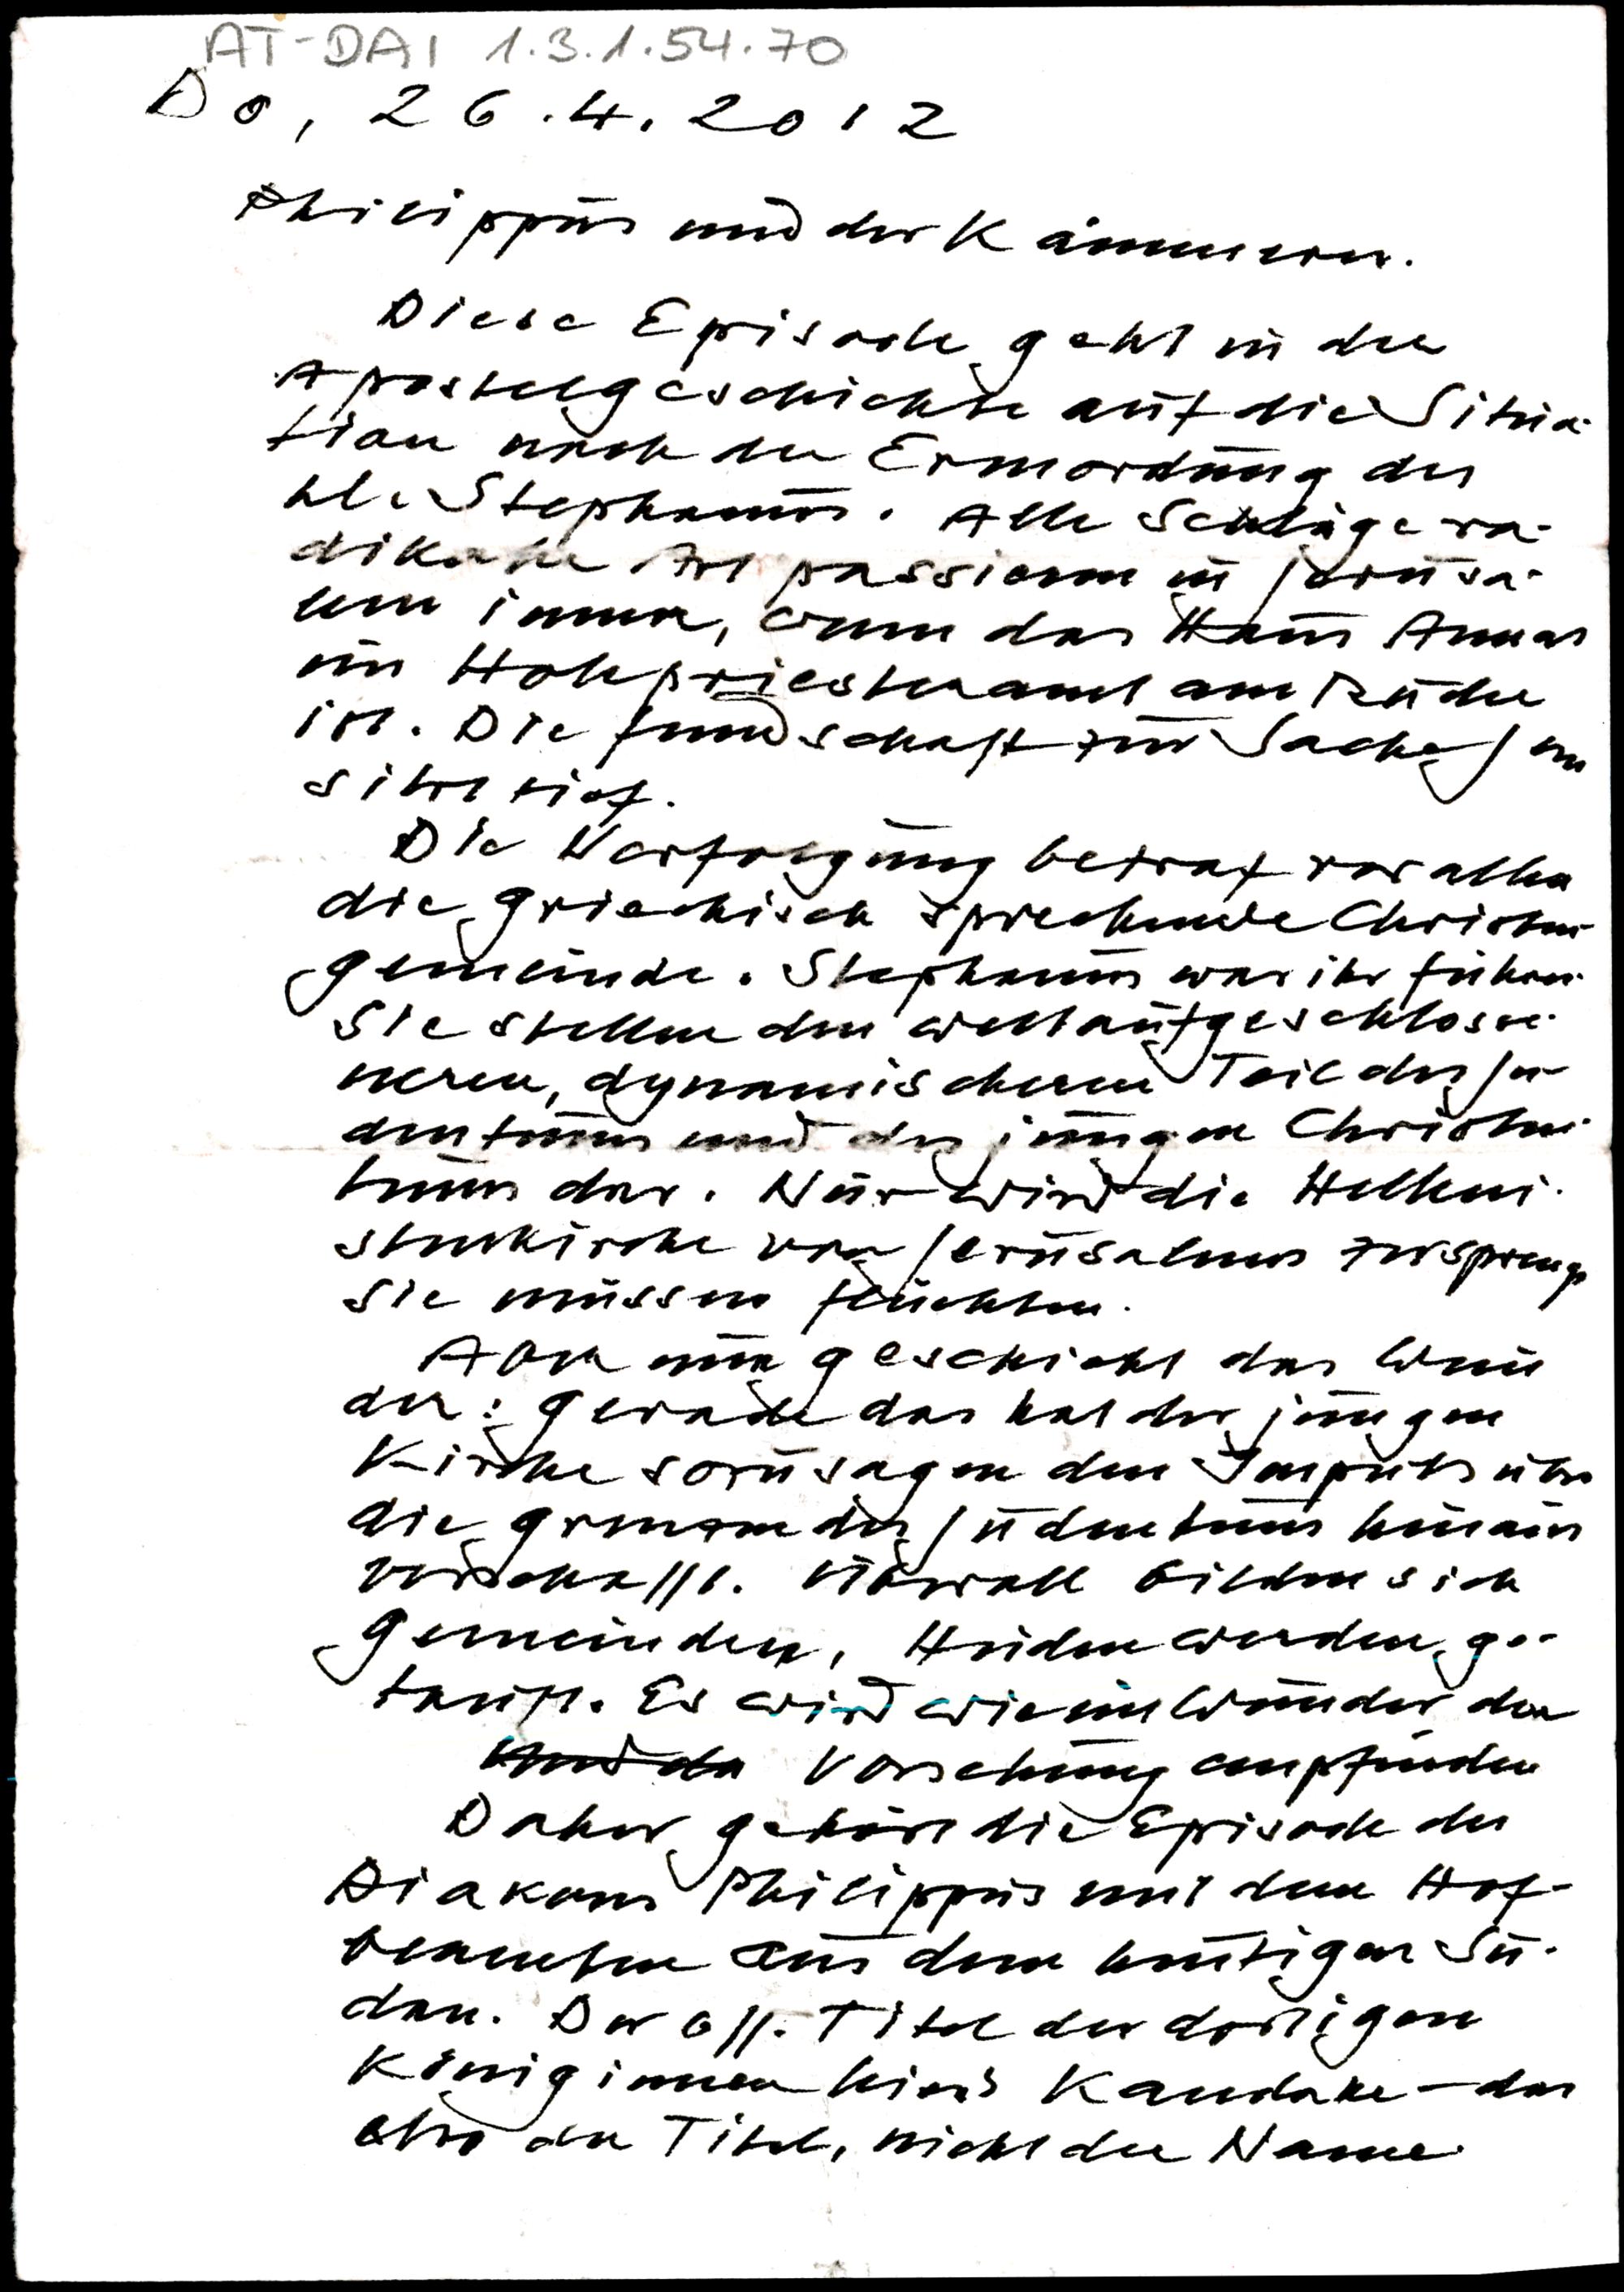 AT-DAI 1.3.1.54.70
Do, 26.4.2012
Philippus und der Kämmerer.
Diese Episode geht in der
Apostelgeschichte auf die Situa-
tion nach der Ermordung des
hl. Stephanus. Alle Schläge ra-
dikaler Art passieren in Jerusa-
lem immer, wenn das Haus Annas
im Hohepriesteramt am Ruder
ist. Die Feindschaft zur Sache Jesu
sitzt tief.
Die Verfolgung betraf vor allem
die griechisch sprechende Christen-
gemeinde. Stephanus war ihr Führer.
Sie stellen den weltaufgeschlosse-
neren, dynamischeren Teil des Ju-
dentums und des jungen Christen-
tums dar. Nur wird die Helleni-
stenkirche von Jerusalem zersprengt
Sie müssen flüchten.
Aber nun geschieht das Wun
der: gerade das hat der jungen
Kirche sozusagen den Impuls über
die Grenzen des Judentums hinaus
verschafft. Überall bilden sich
Gemeinden, Heiden werden ge-
tauft. Es wird wie ein Wunder der
Vorsehung empfunden
Daher gehört die Episode des
Diakons Philippus mit dem Hof-
beamten aus dem heutigen Su-
dan. Der off. Titel der dortigen
Königinnen hieß Kandake – das
also der Titel, nicht der Name.